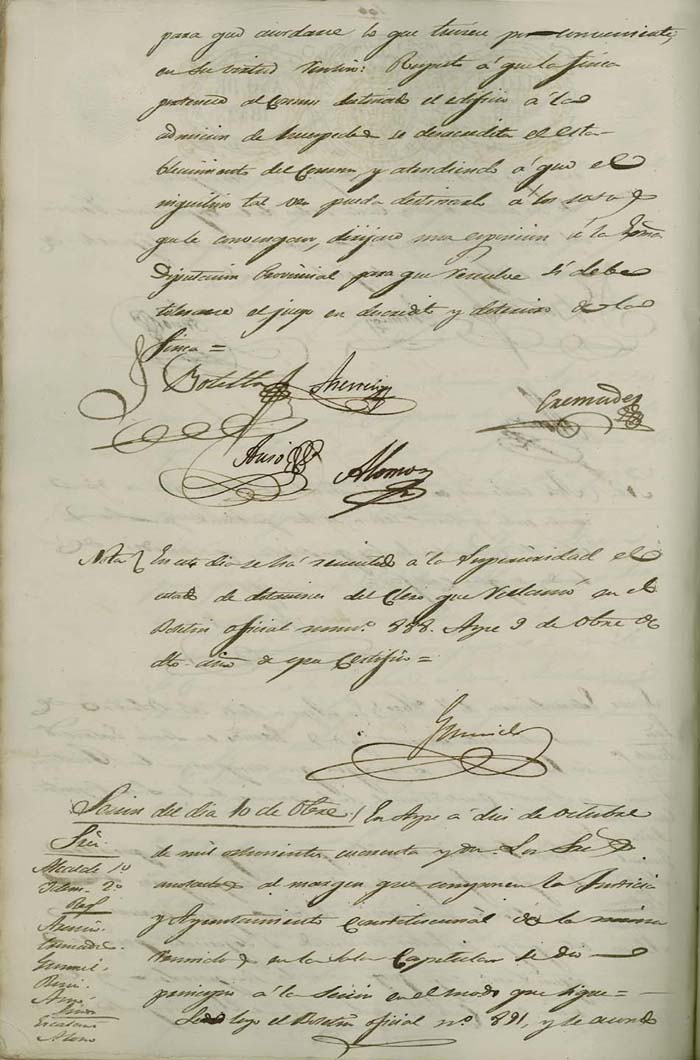 para que acordase lo que tubiese por conveniente,
en su virtud Resolvio: Respecto á que la finca
pertenece al Comun destinado el edificio á la
admision de huespedes se desacredita el esta-
blecimiento del Comun, y atendiendo á que el
inquilino tal vez pueda destinarlo á los usos q
que le convengan, dirijase una esposicion á la Exma
Diputacion Provincial para que resuelva si debe
tolerarse el juego en descredito y deterioro de la
finca =
Botella
Cremades
Alonso
Nota En este dia se há remitido á la Superioridad el
estado de del Clero que reclamó en el
Boletin oficial num.º 888. Aspe 9 de Obre de
dho año de que Certifico =
Sesion del dia 10 de Obre / En Aspe á diez de octubre
Sres.
de mil ochocientos cuarenta y Los Sres
Alcalde 1º
Idem 2º
anotados al margen que componen la Justicia
y Ayuntamiento Constitucional de la misma
Cremades
reunidos en la Sala Capitular se dio
principio á la sesion en el modo que sigue =
Escolano
Alonso
Se leyo el Boletin oficial nº 891, y se acordo